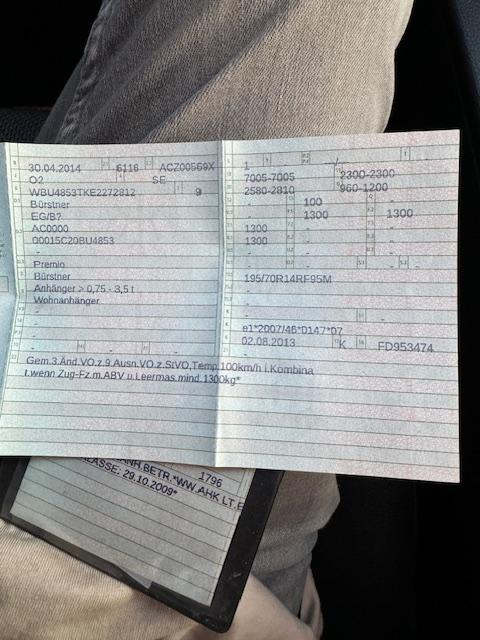 30.04.2014 6116 ACZ00569X
O2 SE
WBU4853TKE2272812 9
Bürstner
EG/B?
AC0000
00015C20BU4853
Premio
Bürstner
Anhänger > 0,75 - 3,5 t
Wohnanhänger
1
7005-7005 2300-2300
2580-2810 960-1200
100
1300 1300
1300
1300
195/70R14RF95M
e1*2007/46*0147*07
02.08.2013 K FD953474
Gem.3.Änd.VO.z.9.Ausn.VO.z.StVO,Temp.100km/h i.Kombina
t.wenn Zug-Fz.m.ABV u.Leermas.mind.1300kg*
1796
ANH.BETR.*WW.AHK LT.E
KLASSE: 29.10.2009*